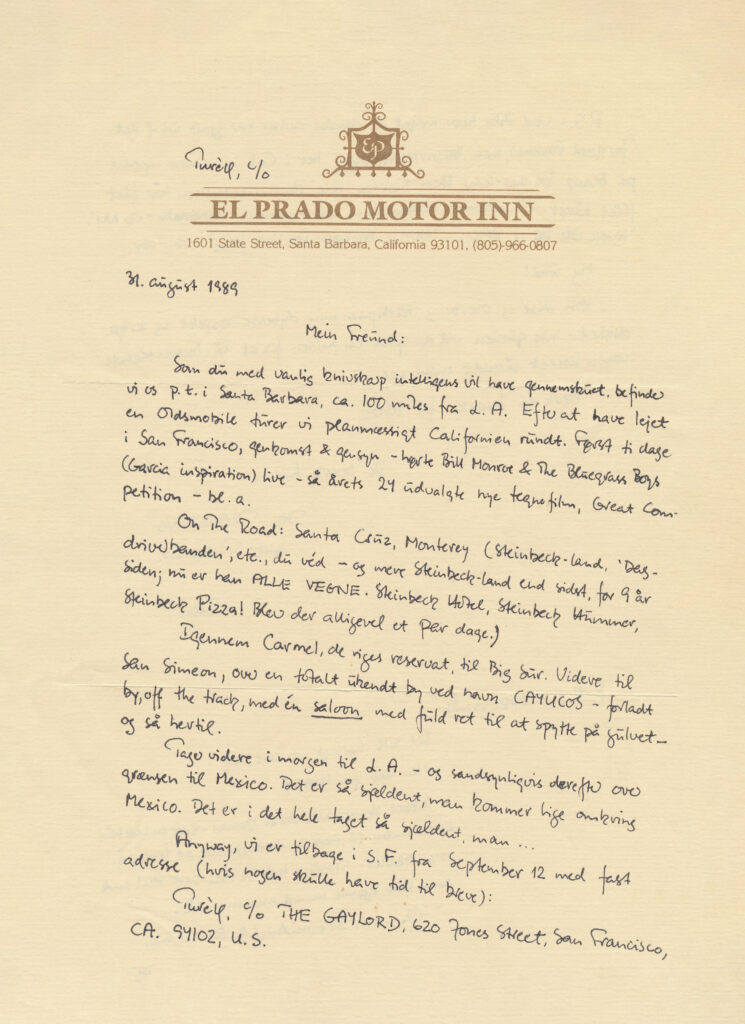 EP
Turèll, c/o
EL PRADO MOTOR INN
1601 State Street, Santa Barbara, California 93101, (805)-966-0807
31. august 1989
Mein Freund:
Som du med vanlig knivskarp intelligens vil have gennemskuet, befinder
vi os p.t. i Santa Barbara, ca. 100 miles fra L.A. Efter at have lejet
en Oldsmobile turer vi planmæssigt Californien rundt. Først ti dage
i San Francisco, genkomst & gensyn - hørte Bill Monroe & The Bluegrass Boys
(Garcia inspiration) live - så årets 24 udvalgte nye tegnefilm, Great Com-
petition - bl.a.
On The Road: Santa Cruz, Monterey (Steinbeck-land, 'Dag-
driverbanden', etc., du véd - og mere Steinbeck-land end sidst, for 9 år
siden; nu er han ALLE VEGNE. Steinbeck Hotel, Steinbeck Hummer,
Steinbeck Pizza! Blev der alligevel et par dage.)
Igennem Carmel, de riges reservat, til Big Sur. Videre til
San Simeon, over en totalt ukendt by ved navn CAYUCOS - forladt
by, off the track, med én saloon med fuld ret til at spytte på gulvet -
og så hertil.
Tager videre i morgen til L.A. - og sandsynligvis derefter over
grænsen til Mexico. Det er så sjældent, man kommer lige omkring
Mexico. Det er i det hele taget så sjældent, man ...
Anyway, vi er tilbage i S.F. fra September 12 med fast
adresse (hvis nogen skulle have tid til breve):
Turèll, c/o THE GAYLORD, 620 Jones Street, San Francisco,
CA. 94102, U.S.